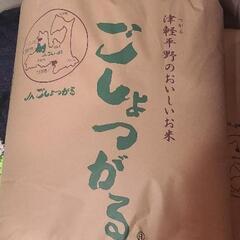 つがる
津軽平野のおいしいお米
ごしょつがる
JAごしょつがる